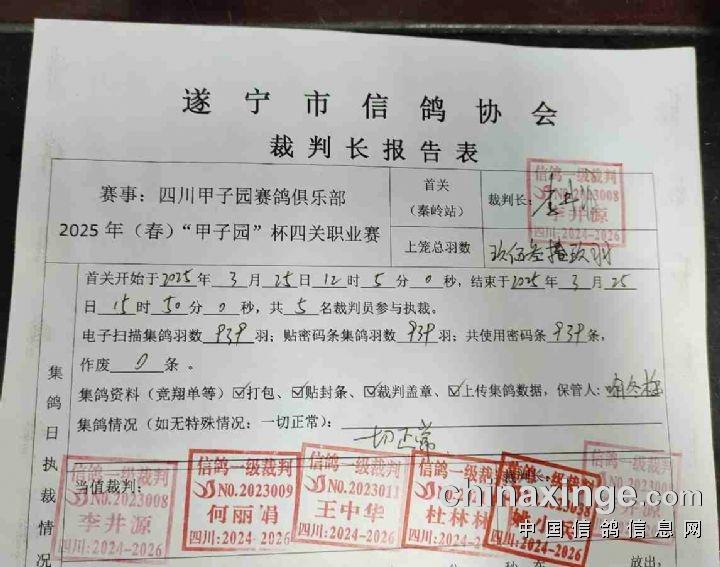 遂宁市信鸽协会
裁判长报告表
赛事：四川甲子园赛鸽俱乐部
2025年（春）“甲子园”杯四关职业赛
首关
（秦岭站）
裁判长：
信鸽一级裁判
NO.2023008
李井源
四川：2024-2026
上笼总羽数
首关开始于2025年3月25日12时5分0秒，结束于2025年3月25
日15时50分0秒，共5名裁判员参与执裁。
电子扫描集鸽羽数939羽；贴密码条集鸽羽数939羽；共使用密码条939条，
作废0条。
集鸽资料（竞翔单等）☑打包、☑贴封条、☑裁判盖章、☑上传集鸽数据，保管人：
集鸽情况（如无特殊情况：一切正常）：
一切正常
集鸽日执裁情况
当值裁判：
信鸽一级裁判
NO.2023008
李井源
四川：2024-2026
信鸽一级裁判
NO.2023009
何丽娟
四川：2024-2026
信鸽一级裁判
NO.2023011
王中华
四川：2024-2026
信鸽一级裁判
杜林林
四川：2024-2026
裁判长：
姚小兵
四川：2024-2026
信鸽一级裁判
chinaxinge.com
中国信鸽信息网
放出，